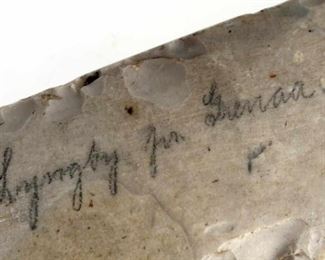 Lyngby pr Grenaa.